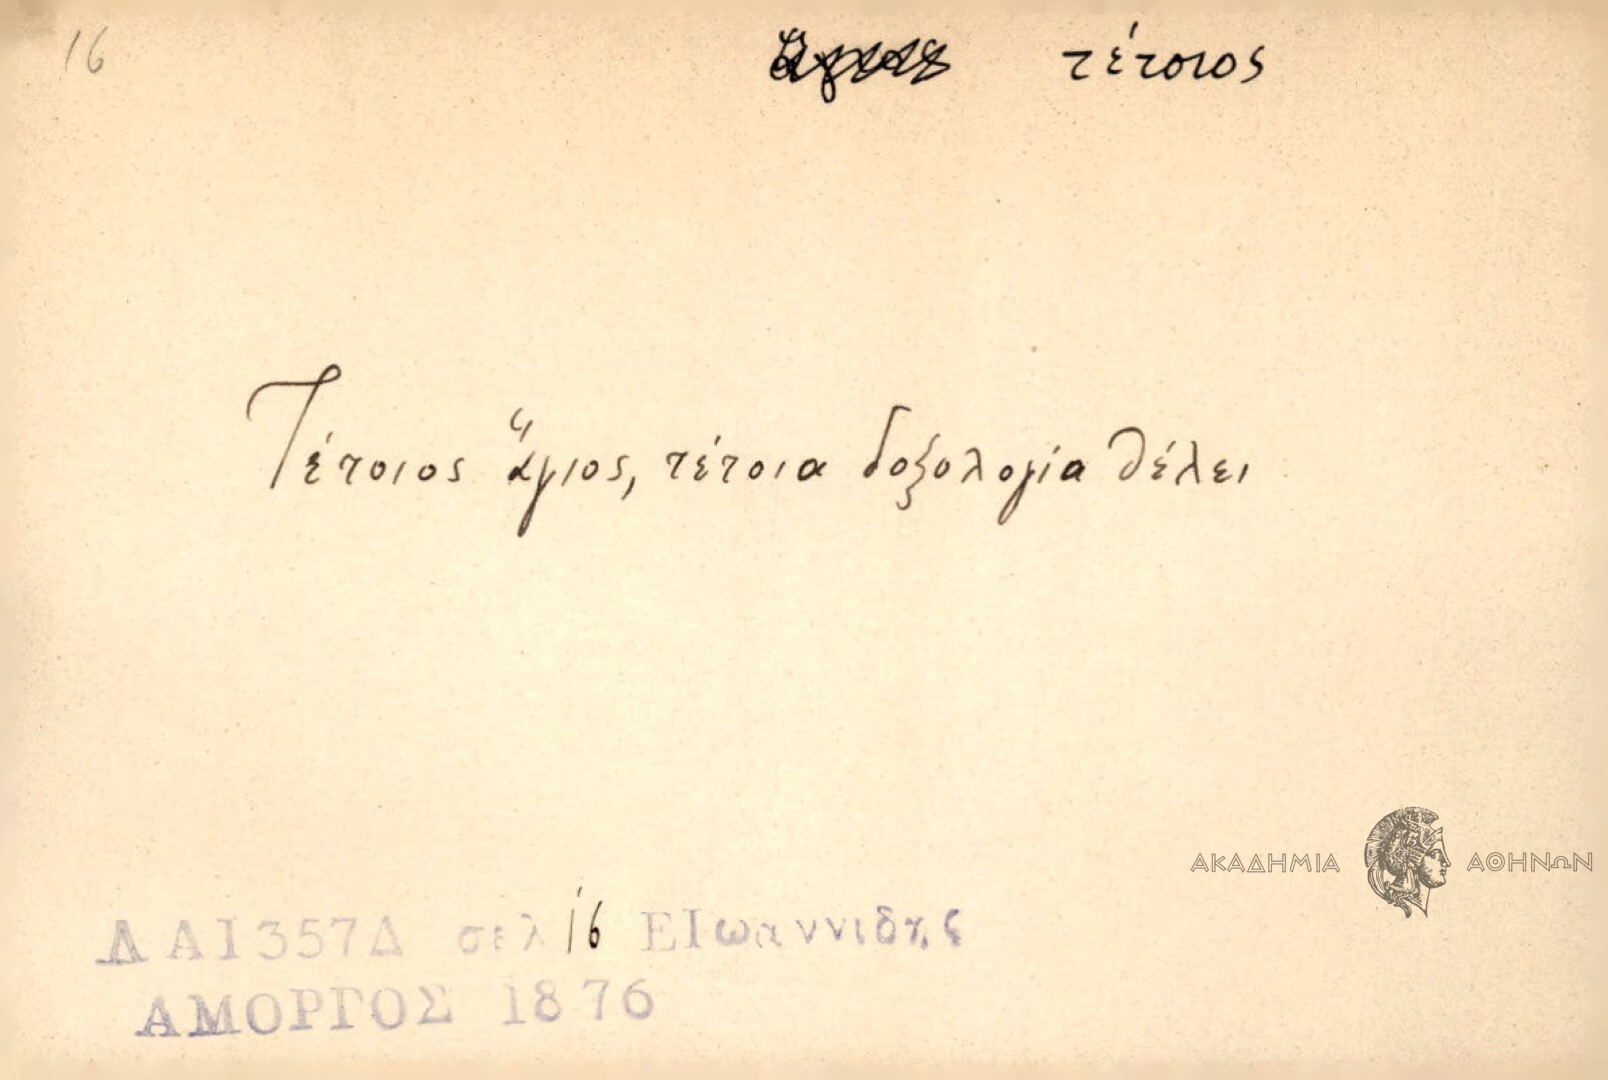 16 ἅγιος τέτοιος
Τέτοιος ἅγιος, τέτοια δοξολογία θέλει
ΑΚΑΔΗΜΙΑ ΑΘΗΝΩΝ
ΛΑ1357Δ σελ 16 ΕΙωαννιδης
ΑΜΟΡΓΟΣ 1876